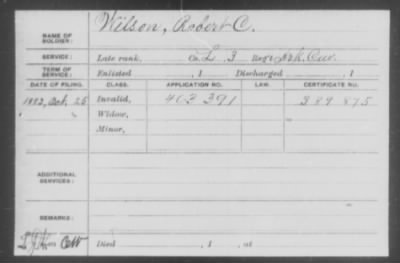 Wilson, Robert C.
NAME OF SOLDIER:
SERVICE: Late rank, Co. L, 3 Reg't Ark. Cav.
TERM OF SERVICE: Enlisted , 1 Discharged , 1
DATE OF FILING. CLASS. APPLICATION NO. LAW. CERTIFICATE NO.
1882, Oct. 25 Invalid, 403 391 389 875
Widow,
Minor,
ADDITIONAL SERVICES:
REMARKS:
Died , 1 , at